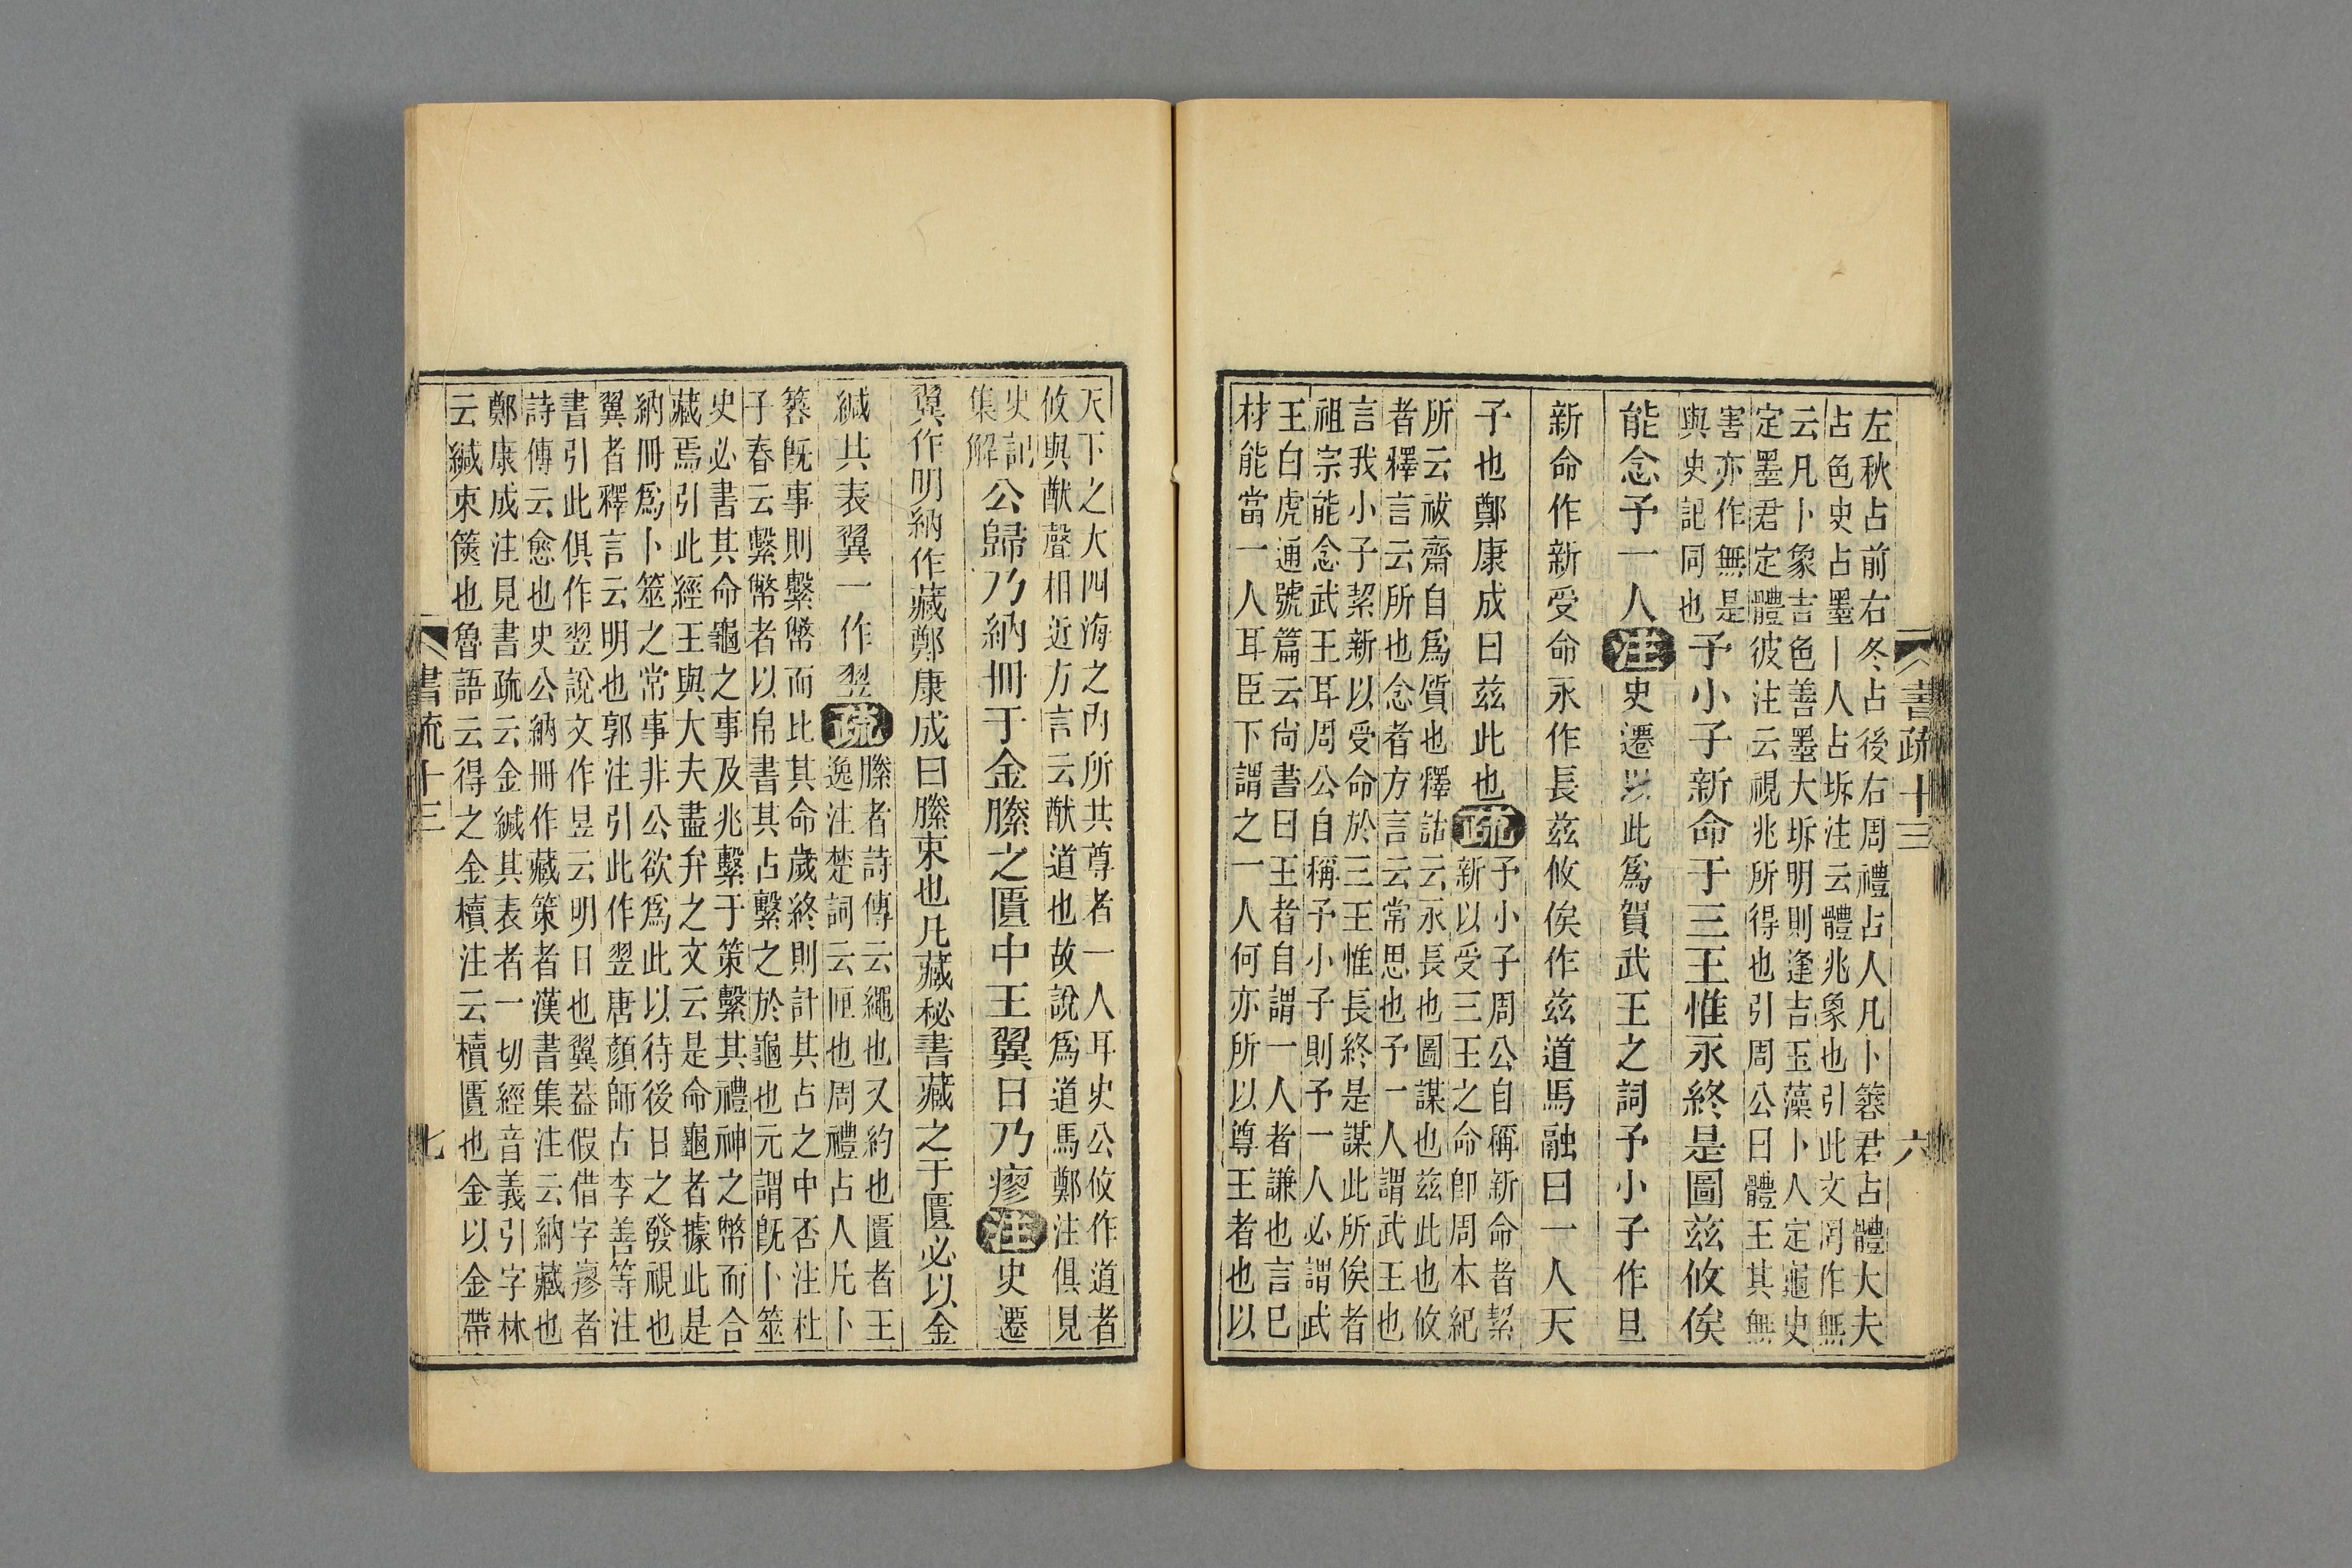 書疏十三　六
左秋占前右冬占後右周禮占人凡卜簭君占體大夫
占色史占墨卜人占坼注云體兆象也引此文罔作無
云凡卜象吉色善墨大坼明則逢吉玉藻卜人定龜史
定墨君定體彼注云視兆所得也引周公曰體王其無
害亦作無是
與史記同也
予小子新命于三王惟永終是圖茲攸俟
能念予一人注史遷以此爲賀武王之詞予小子作旦
新命作新受命永作長茲攸俟作茲道馬融曰一人天
子也鄭康成曰茲此也疏
予小子周公自稱新命者絜
新以受三王之命卽周本紀
所云祓齋自爲質也釋詁云永長也圖謀也茲此也攸
者釋言云所也念者方言云常思也予一人謂武王也
言我小子絜新以受命於三王惟長終是謀此所俟者
祖宗能念武王耳周公自稱予小子則予一人必謂武
王白虎通號篇云尚書曰王者自謂一人者謙也言已
材能當一人耳臣下謂之一人何亦所以尊王者也以
天下之大四海之內所共尊者一人耳史公攸作道者
攸與猷聲相近方言云猷道也故說爲道馬鄭注俱見
史記
集解
公歸乃納冊于金縢之匱中王翼日乃瘳注史遷
翼作明納作藏鄭康成曰縢束也凡藏秘書藏之于匱必以金
緘其表翼一作翌疏
縢者詩傳云繩也又約也匱者王
逸注楚詞云匣也周禮占人凡卜
簭旣事則繫幣而比其命歲終則計其占之中否注杜
子春云繫幣者以帛書其占繫之於龜也元謂旣卜筮
史必書其命龜之事及兆繫于策繫其禮神之幣而合
藏焉引此經王與大夫盡弁之文云是命龜者據此是
納冊爲卜筮之常事非公欲爲此以待後日之發視也
翼者釋言云明也郭注引此作翌唐顏師古李善等注
書引此俱作翌說文作昱云明日也翼葢假借字瘳者
詩傳云愈也史公納冊作藏策者漢書集注云納藏也
鄭康成注見書疏云金緘其表者一切經音義引字林
云緘束篋也魯語云得之金櫝注云櫝匱也金以金帶
書疏十三　七